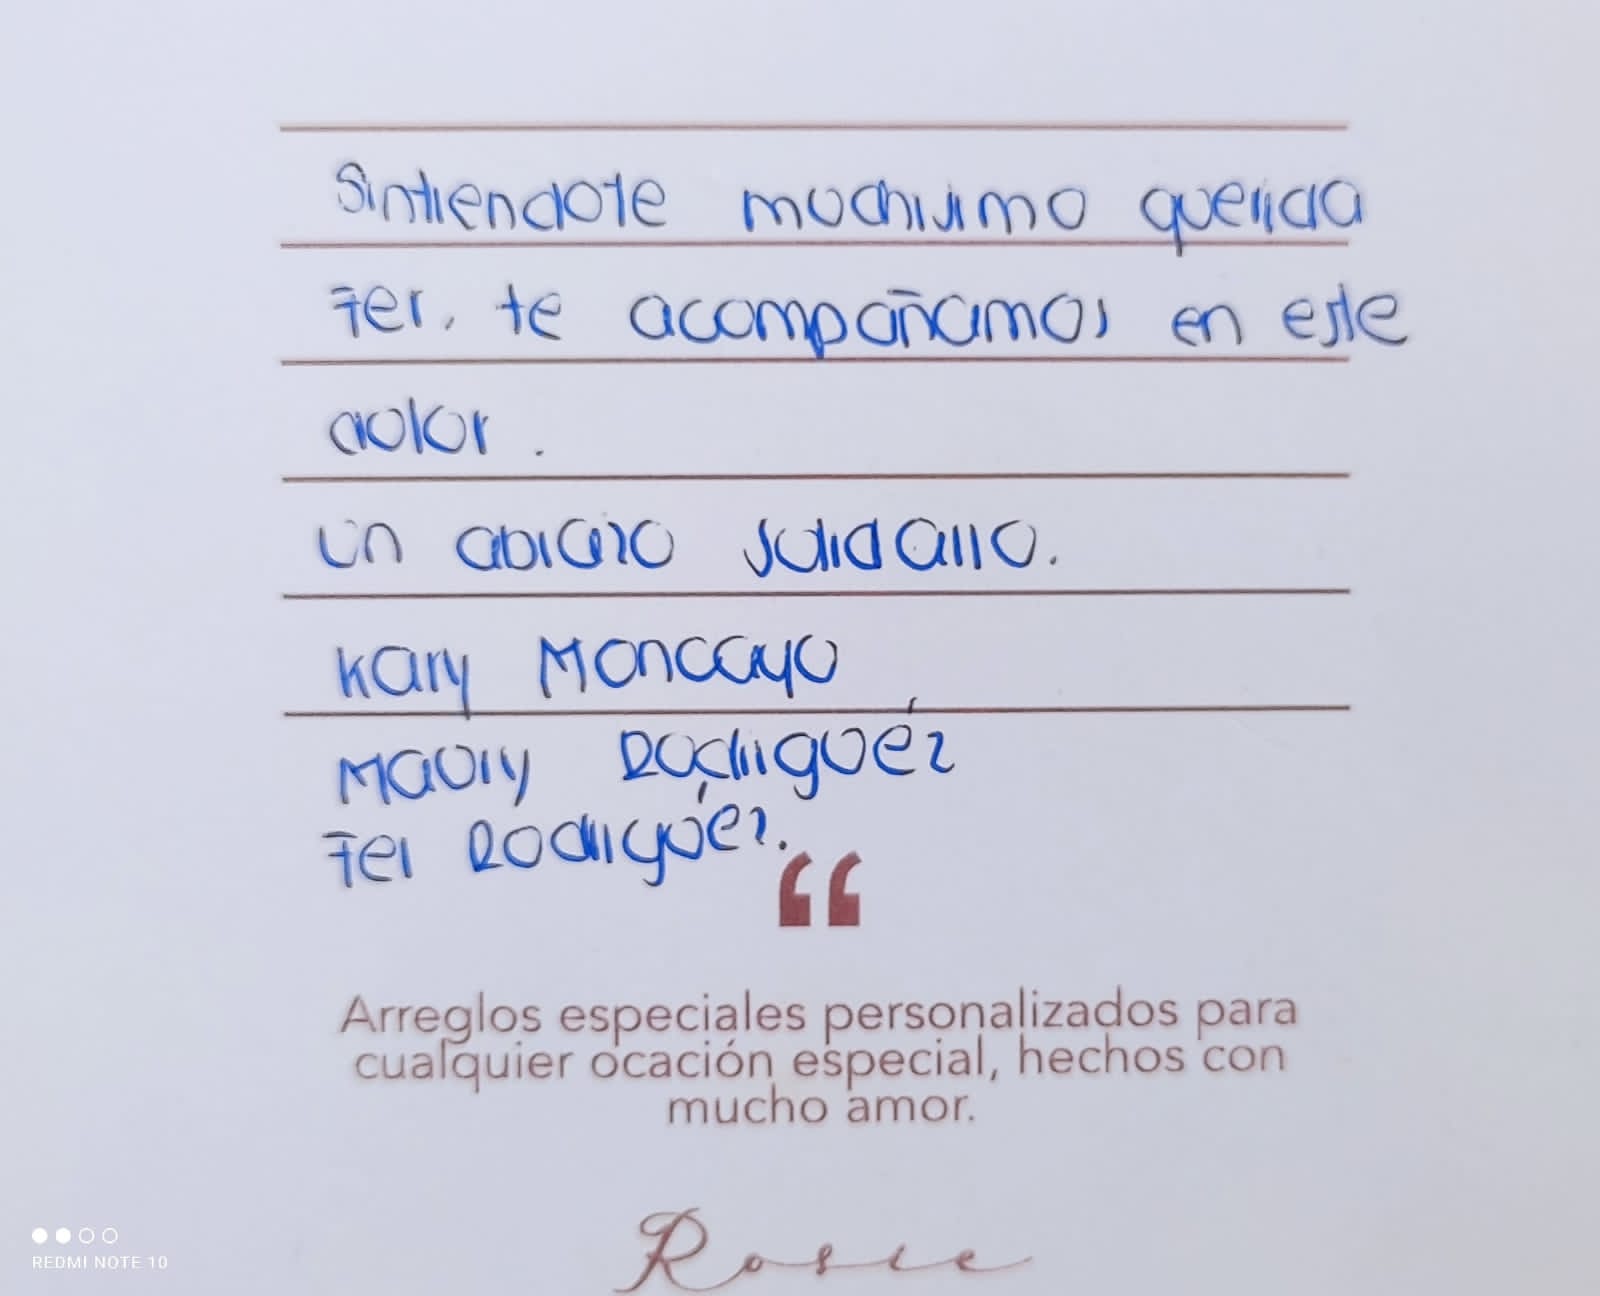 Sintiendote muchisimo querida
Fer, te acompañamos en este
dolor.
un abrazo solidario.
Kary Moncayo
Maury Rodriguéz
Fer Rodriguéz.
“
Arreglos especiales personalizados para
cualquier ocación especial, hechos con
mucho amor.
Rosie
REDMI NOTE 10